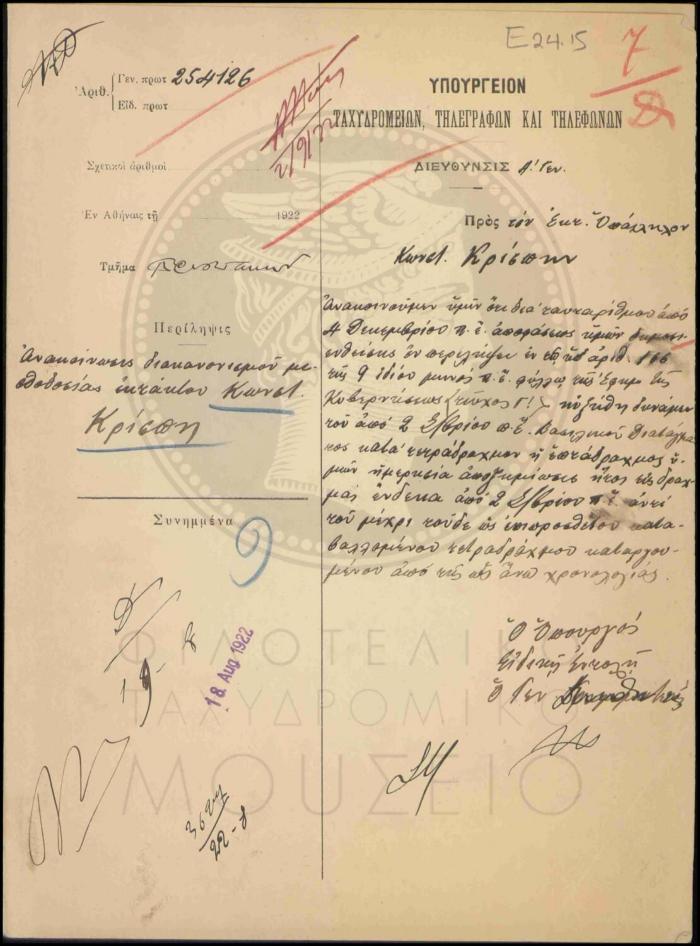 E24.15
7
Ἀριθ. Γεν. πρωτ 254126
Εἰδ. πρωτ.
2/9/22
ΥΠΟΥΡΓΕΙΟΝ
ΤΑΧΥΔΡΟΜΕΙΩΝ, ΤΗΛΕΓΡΑΦΩΝ ΚΑΙ ΤΗΛΕΦΩΝΩΝ
ΔΙΕΥΘΥΝΣΙΣ Α! Γεν.
Σχετικοὶ ἀριθμοὶ
Ἐν Ἀθήναις τῇ 1922
Τμῆμα
Πρὸς τὸν Ἐκτ. Ὑπάλληλον
Κωνστ. Κρίσπην
Περίληψις
Ἀνακοίνωσις διακανονισμοῦ μι-
σθοδοσίας ἐκτάκτου Κωνστ.
Κρίσπη
Ἀνακοινοῦμεν ὑμῖν ὅτι διὰ ταυταρίθμου ἀπὸ
4 Δεκεμβρίου π. ἔ. ἀποφάσεως ἡμῶν δημοσι-
ευθείσης ἐν περιλήψει ἐν τῷ ὑπ' ἀριθ. 166
τῆς 9 ἰδίου μηνὸς π. ἔ. φύλλῳ τῆς Ἐφημ. τῆς
Κυβερνήσεως (τεῦχος Γ!) ηὐξήθη δυνάμει
τοῦ ἀπὸ 2 Σ/βρίου π. ἔ. Βασιλικοῦ Διατάγμα
τος κατὰ τετράδραχμον ἡ ἑπτάδραχμος ὑ-
μῶν ἡμερησία ἀποζημίωσις ἤτοι εἰς δραχ-
μὰς ἕνδεκα ἀπὸ 2 Σ/βρίου π. ἔ. ἀντὶ
τοῦ μέχρι τοῦδε ὡς ἐπιπροσθέτου κατα-
βαλλομένου τετραδράχμου καταργου-
μένου ἀπὸ τῆς ὡς ἄνω χρονολογίας.
Συνημμένα
18 Aug 1922
Ὁ Ὑπουργός
Εἰδικῇ Ἐντολῇ
Ὁ Γεν
19-8
22-8
ΦΙΛΟΤΕΛΙΚΟ
ΤΑΧΥΔΡΟΜΙΚΟ
ΜΟΥΣΕΙΟ